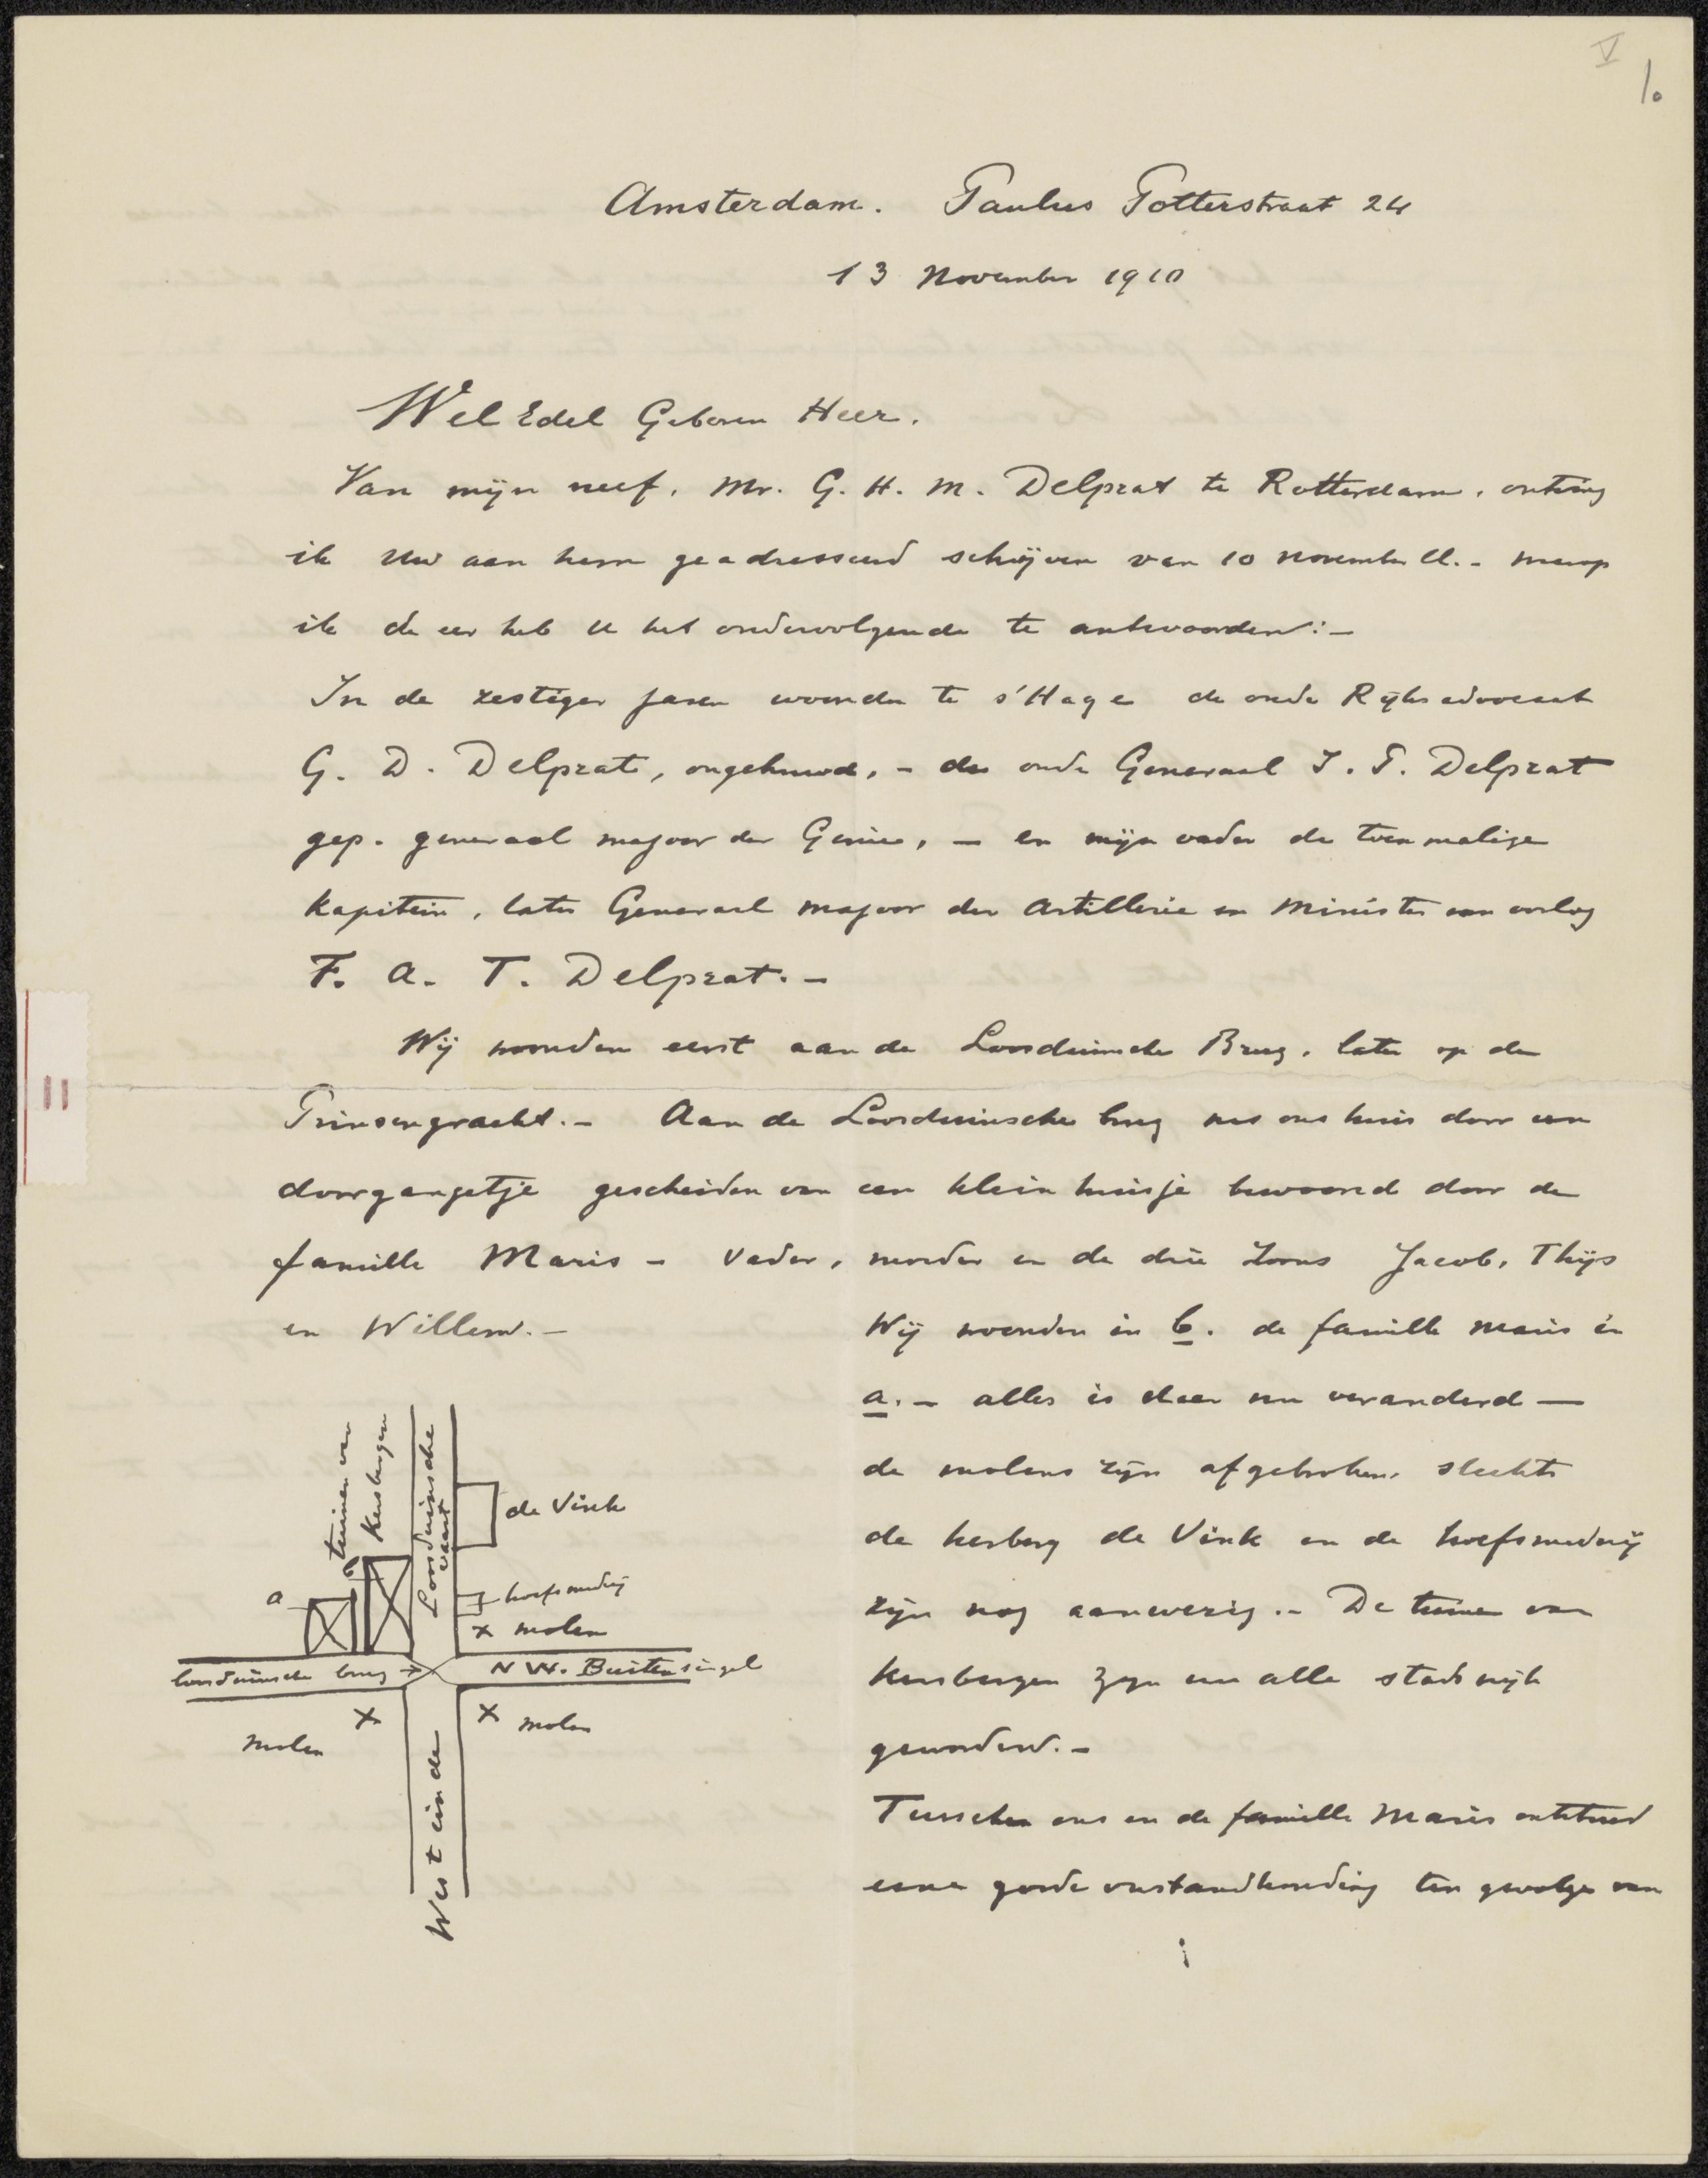 V
1.
Amsterdam. Paulus Potterstraat 24
13 November 1910
WelEdel Geboren Heer.
Van mijn neef, Mr. G. H. M. Delprat te Rotterdam, ontving
ik Uw aan hem geadresseerd schrijven van 10 november ll. - waarop
ik de eer heb U het ondervolgende te antwoorden:-
In de zestiger jaren woonden te s'Hage de oude Rijksadvocaat
G. D. Delprat, ongehuwd, - de oude Generaal I. P. Delprat
gep. generaal majoor der Genie, - en mijn vader de toenmalige
kapitein, later Generaal majoor der Artillerie en Minister van oorlog
F. A. T. Delprat. -
Wij woonden eerst aan de Loosduinsche Brug, later op de
Prinsengracht. - Aan de Loosduinsche brug was ons huis door een
doorgangetje gescheiden van een klein huisje bewoond door de
famille Maris - Vader, moeder en de drie zoons Jacob, Thijs
en Willem. -
Wij woonden in b. de famille Maris in
a. - alles is daar nu veranderd -
de molens zijn afgebroken, slechts
de herberg de Vink en de hoefsmederij
zijn nog aanwezig. - De tuinen van
Kersbergen zijn nu alle stadswijk
geworden. -
Tusschen ons en de famille Maris ontstond
eene goede verstandhouding ten gevolge van
tuinen van
Kersbergen
Loosduinsche
vaart
de Vink
a
b
hoefsmederij
x molen
loosduinsche brug →
N W. Buitensingel
x
molen
x molen
Westeinde
11